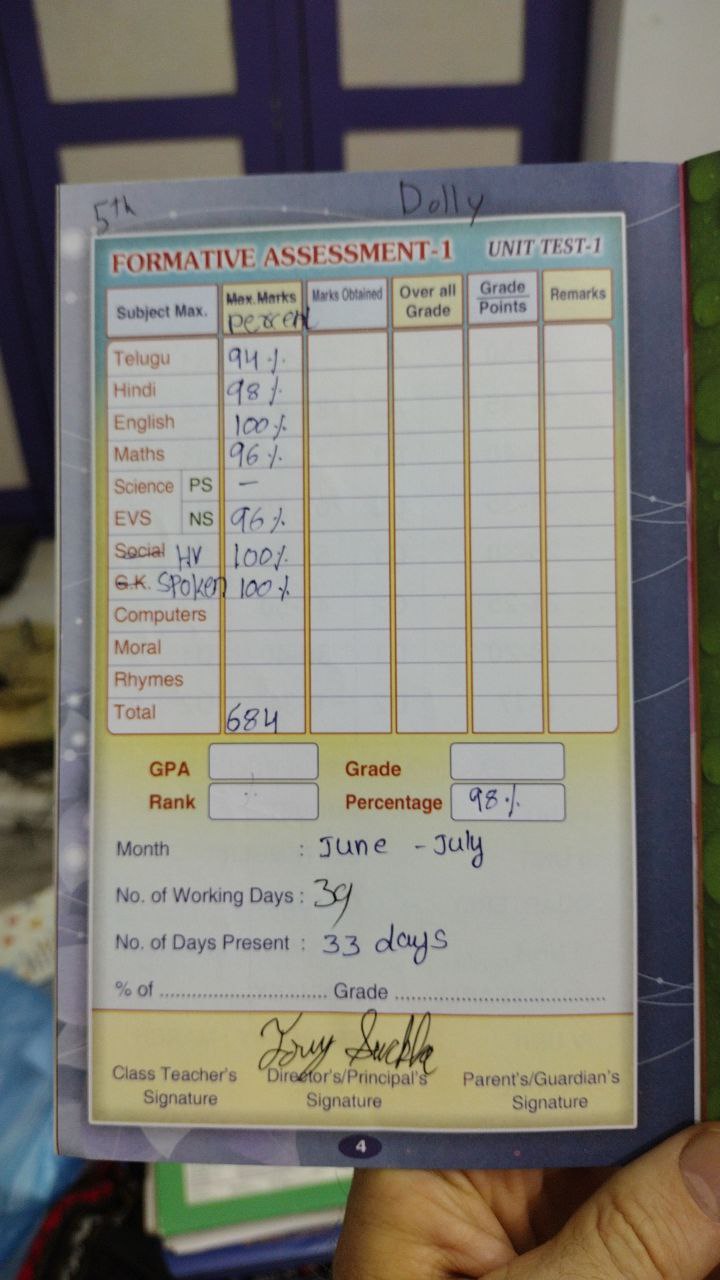 5th Dolly
FORMATIVE ASSESSMENT-1 UNIT TEST-1
Subject Max. Max. Marks percent Marks Obtained Over all Grade Grade Points Remarks
Telugu 94%
Hindi 98%
English 100%
Maths 96%
Science PS -
EVS NS 96%
Social HV 100%
G.K. Spoken 100%
Computers
Moral
Rhymes
Total 684
GPA Grade
Rank Percentage 98%
Month : June - July
No. of Working Days : 39
No. of Days Present : 33 days
% of .............................. Grade ......................................
Class Teacher's Signature Director's/Principal's Signature Parent's/Guardian's Signature
4